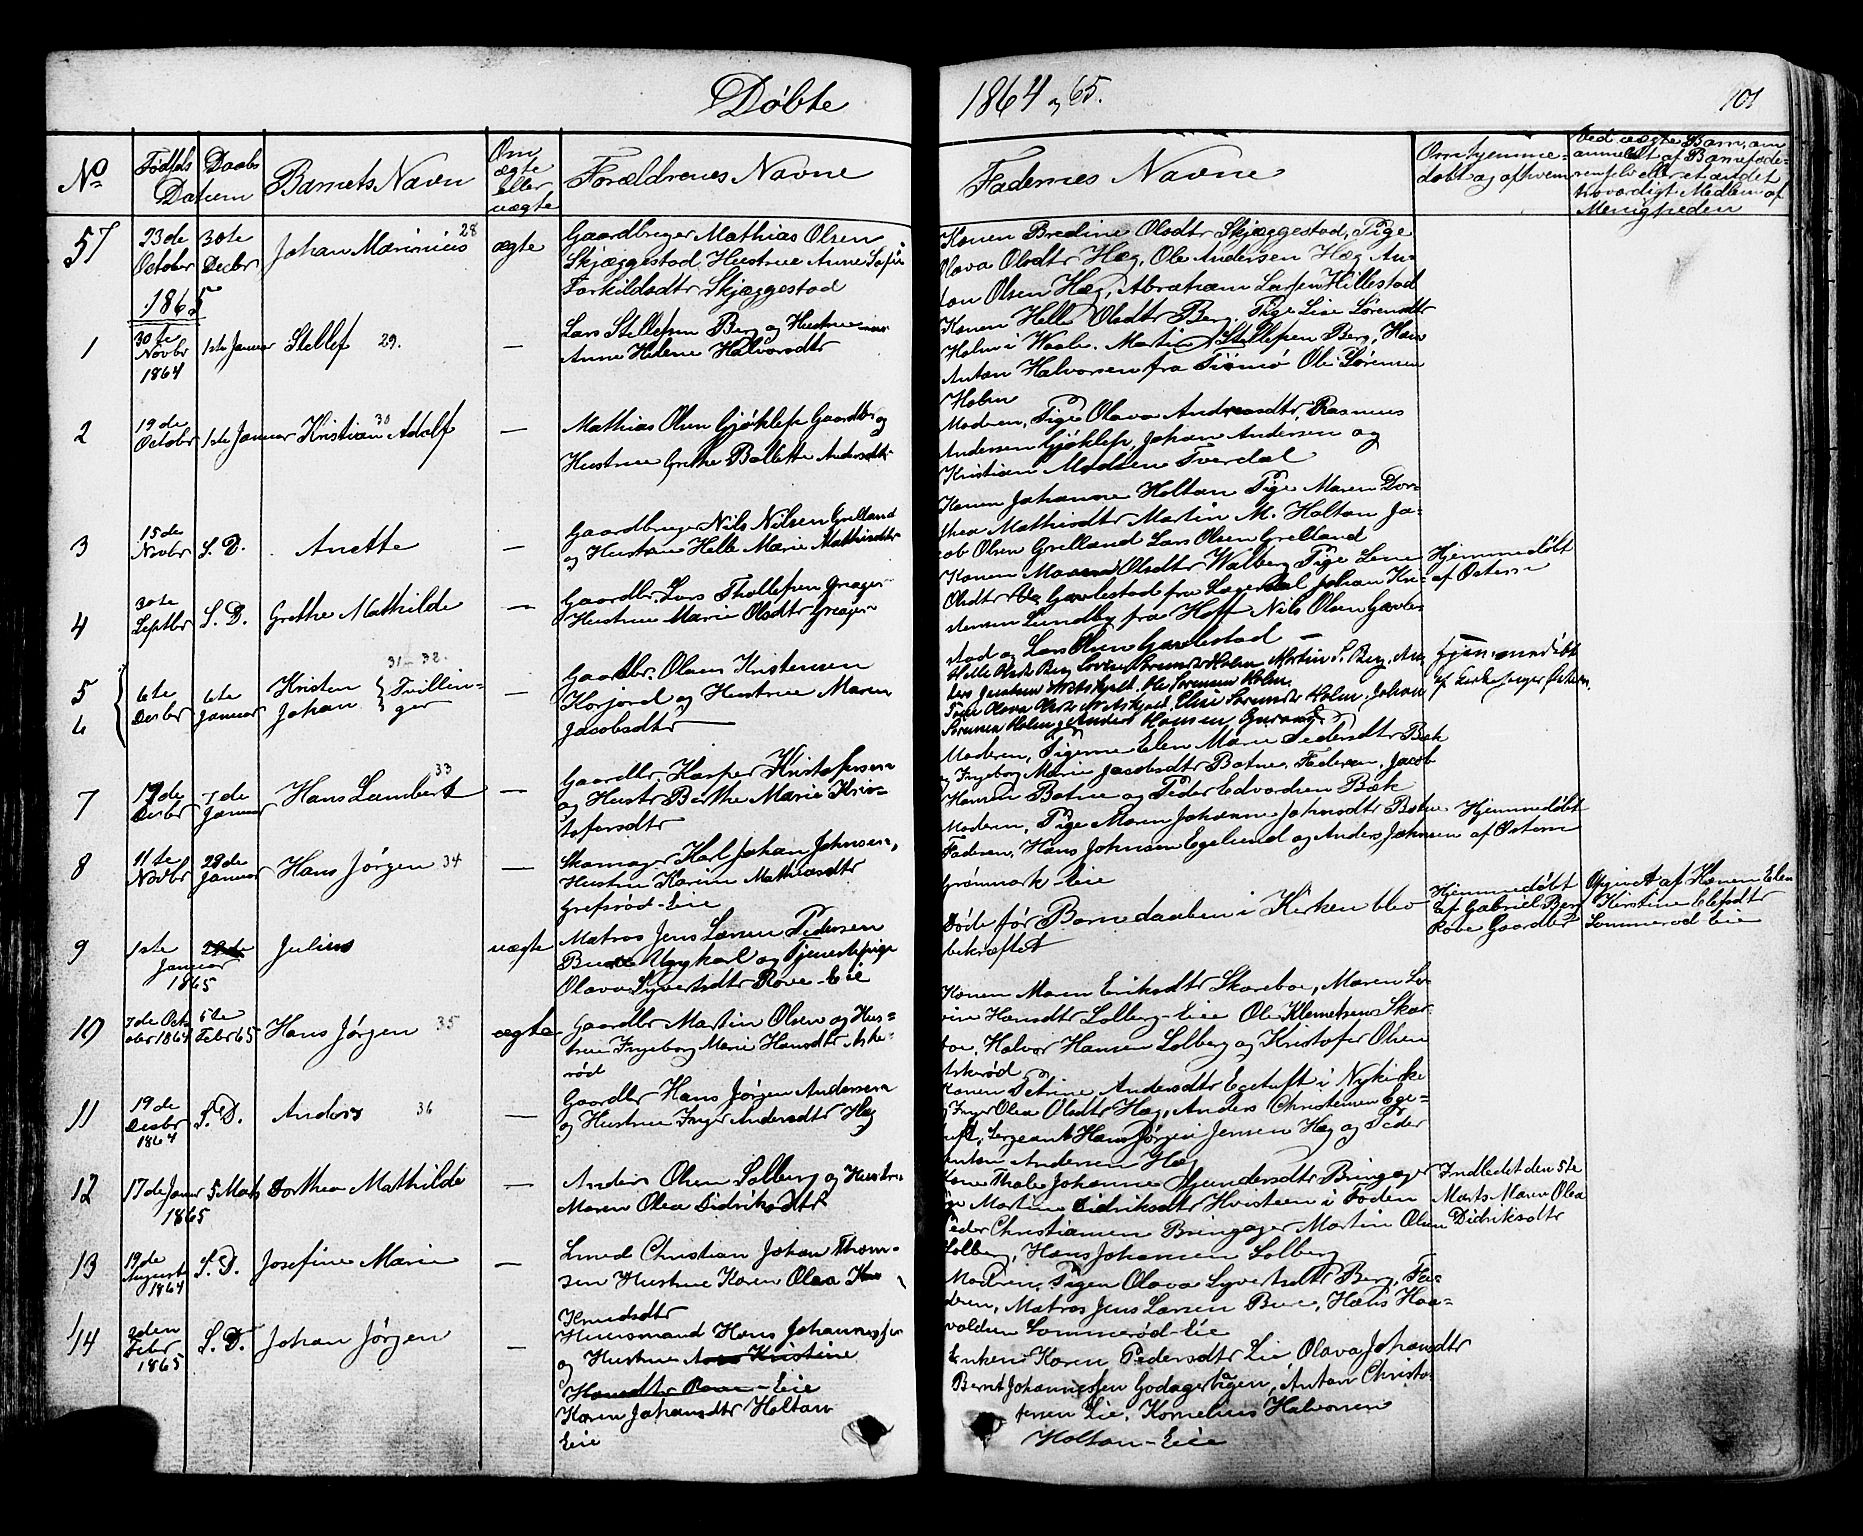 Døbte
1864 og 65.
101
No
Fødsels
Daabs
Datum
Barnets Navn
Om
ægte
eller
uægte
Forældrenes Navne
Faddernes Navne
Om hjemme-
døbt og af hvem
Ved uægte Barn, om
anmeldt af Barnefade-
ren selv eller et andet
troværdigt Medlem af
Menigheden
57
23de
October
30te
Decbr
Johan Marinius 28
ægte
Gaardbruger Mathias Olsen
Skjæggestad, Hustrue Anne Sofie
Torkildsdtr Skjæggestad
Konen Bredine Olsdtr Skjæggestad, Pige
Olava Olsdtr Hæg, Ole Andersen Hæg, An-
ton Olsen Hæg, Abraham Larsen Hillestad
1865
1
30te
Novbr
1864
1ste Januar
Stellef 29.
—
Lars Stellefsen Berg og Hustrue
Anne Helene Halvorsdtr
Konen Helle Olsdtr Berg, Pige Lise Sørensdtr
Holm i Vaale, Martin Stellefsen Berg, Hans
Anton Halvorsen fra Tjømø Ole Sørensen
Holm
2
19de
October
1ste Januar
Kristian Adolf 30
—
Mathias Olsen Gjøklep Gaardbr og
Hustrue Grethe Bollette Andersdtr
Modren, Pige Olava Andreasdtr, Rasmus
Andersen Gjøklep, Johan Andersen og
Kristian Madsen Tverdal
3
15de
Novbr
S. D.
Anette
—
Gaardbruger Nils Nilsen Grelland
og Hustrue Helle Marie Mathisdtr
Konen Johanne Holtan Pige Maren Dor-
thea Mathisdtr Martin M. Holtan Ja-
cob Olsen Grelland Lars Olsen Grelland
4
30te
Septbr
S. D.
Grethe Mathilde
—
Gaardbr. Lars Thollefsen Greager
Hustrue Marie Olsdtr Greager
Konen Maren Olsdtr Walberg Pige Lene
Olsdtr Gavlestad fra Laugerdal Johan Kri-
stensen Lundby fra Hoff Nils Olsen Gavle-
stad og Lars Olsen Gavlestad
Hjemmedøbt
af Østern
5
6
6te
Decbr
6te
Januar
31 32.
Kristen
Johan
Tvillin-
ger
—
Gaardbr. Olaus Kristensen
Korjord og Hustrue Maren
Jacobsdtr
Helle Olsdtr Berg Lovise Sørensdtr Holm Martin S. Berg, An-
ders Jacobsen Ole Sørensen Holm
Pige Olava Olsdtr Elise Sørensdtr Holm, Johan
Sørensen Holm og Anders Hansen
Hjemmedøbt
af Kirkesanger Østern.
7
19de
Decbr
7de
Januar
Hans Lambert 33
—
Gaardbr. Kasper Kristofersen
og Hustr Berthe Marie Kris-
tofersdtr
Modren, Pigerne Elen Marie Pedersdtr Bæk
og Ingeborg Marie Jacobsdtr Botne, Faderen, Jacob
Hansen Botne og Peder Edvardsen Bæk
8
11te
Novbr
28de
Januar
Hans Jørgen 34
—
Skomager Karl Johan Johnsen,
Hustru Karine Mathiasdtr
Grefsrød-Eie
Modren, Pige Maren Johanne Johnsdtr Botne
Faderen, Hans Johnsen Egelund og Anders Johnsen
Grønmark-Eie
Hjemmedøbt
af Østern
9
1ste
Januar
1865
28de
Julius
uægte
Matros Jens Larsen Pedersen
Bue Ungkarl og Tjenestepige
Olava Syvertsdtr Rove-Eie
Døde før Barnedaaben i Kirken blev
bekræftet
Hjemmedøbt
af Gabriel Berg
Rove Gaardbr
Opgivet af Konen Elen
Kirstine Olsdtr
Sommerød Eie
10
7de Oct-
ober 1864
5te
Febr 65
Hans Jørgen 35
ægte
Gaardbr Martin Olsen og Hus-
true Ingeborg Marie Hansdtr Aske-
rød
Konen Maren Eriksdtr Skareboe, Maren Lo-
vise Hansdtr Solberg-Eie Ole Klemetsen Skar-
boe, Halvor Hansen Solberg og Kristofer Olsen
Askerød
11
19de
Decbr
1864
S. D.
Anders 36
—
Gaardbr Hans Jørgen Andersen
og Hustrue Inger Andersdtr Hæg
Konen Petrine Andersdtr Egetuft i Nykirke
Inger Olea Olsdtr Hæg, Anders Christensen Ege-
tuft, Sergeant Hans Jørgen Jensen Hæg og Peder
Anton Andersen Hæg
12
17de Januar
1865
5 Marts
Dorthea Mathilde
—
Anders Olsen Solberg og Hustru
Maren Olea Didriksdtr
Kone Thale Johanne Gundersdtr Bringager
Pige Martine Didriksdtr Hvisteen i Foden
Peder Christiansen Bringager Martin Olsen
Solberg, Hans Johansen Solberg
Indledet den 5te
Marts Maren Olea
Didriksdtr
13
19de
August
1864
S. D.
Josefine Marie
—
Smed Christian Johan Thom-
sen Hustrue Karen Olea
Knudsdtr
Modren, Pigen Olava Syvertsdtr Berg, Fa-
deren, Matros Jens Larsen Bue, Hans Haa-
valdsen Sommerød-Eie
14
2den
Febr
1865
S. D.
Johan Jørgen
—
Huusmand Hans Johannessen
og Hustrue Anne Kristine
Hansdtr Rove-Eie
Karen Johansdtr Holtan
Eie
Enken Karen Pedersdtr Eie Olava Johansdtr
Bernt Johannessen Godagerhagen, Anton Christo-
fersen Eie, Kornelius Halvorsen
Holtan-Eie